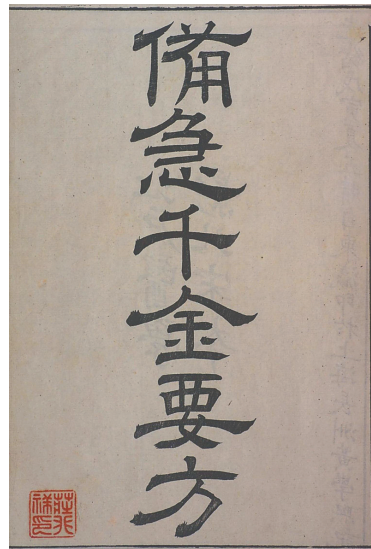 備急千金要方